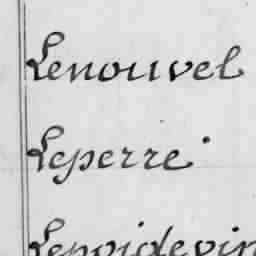 Lenouvel
Leperre
Lepoidevin